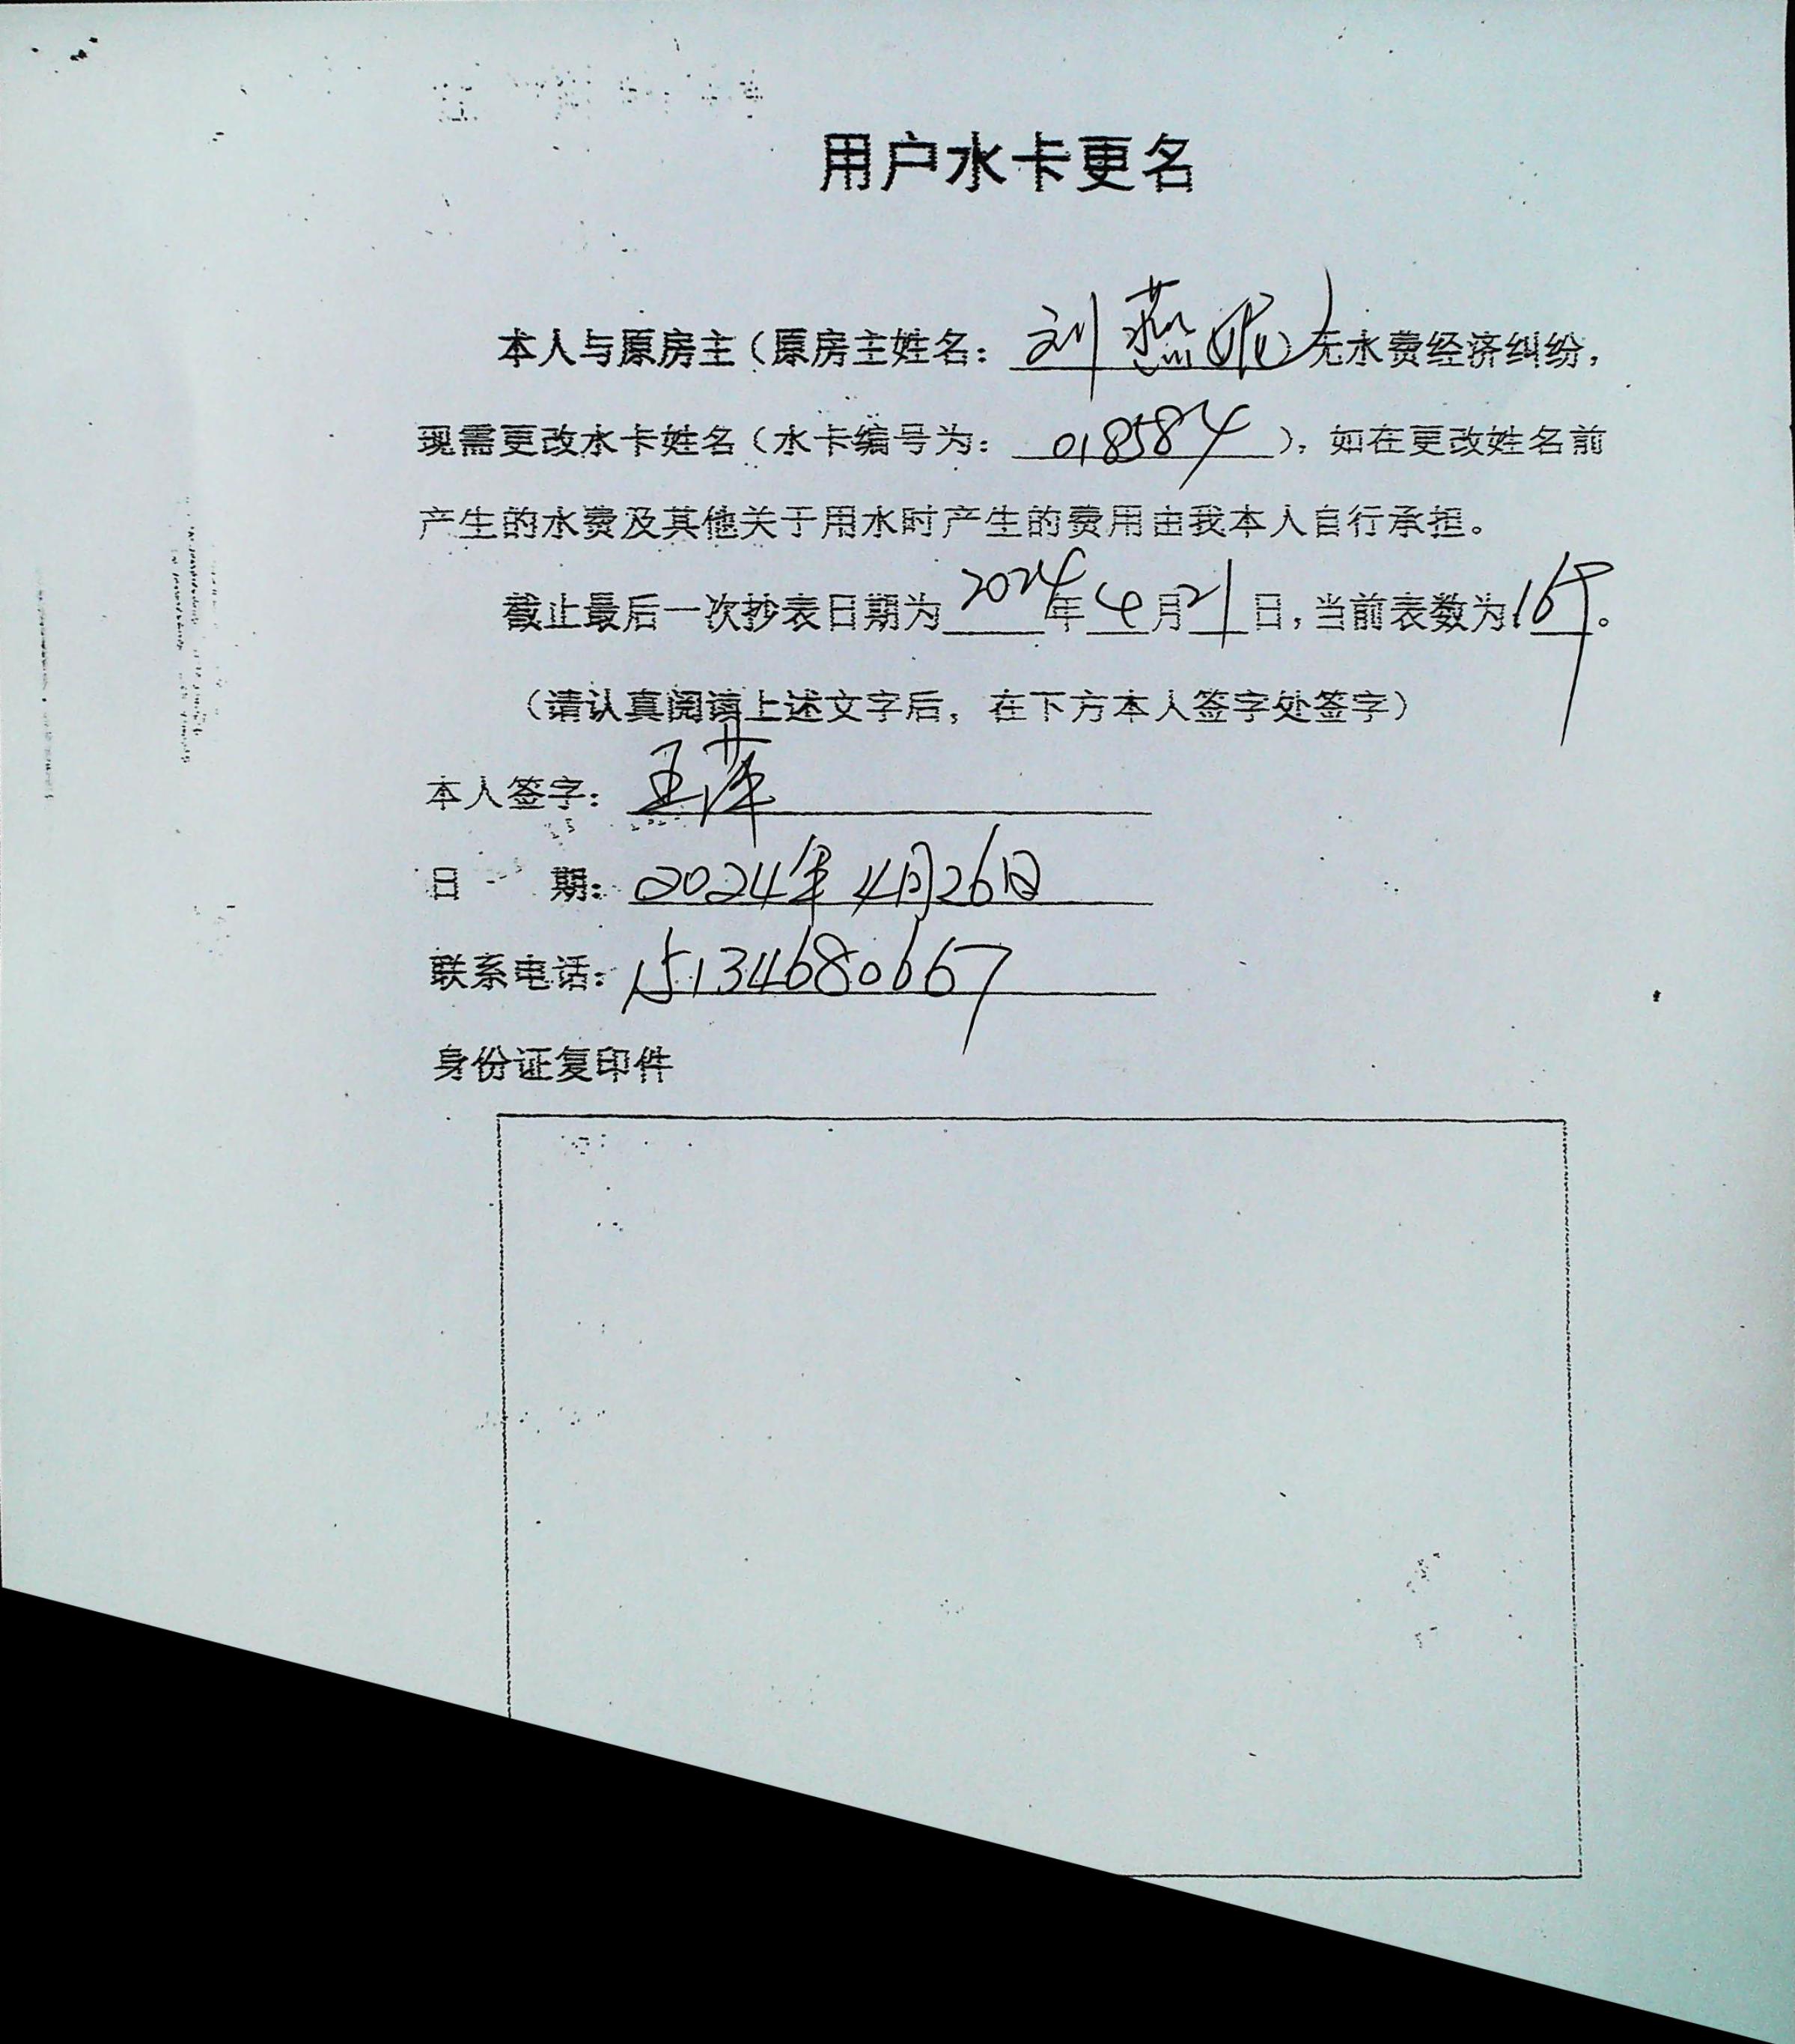 用户水卡更名
本人与原房主（原房主姓名：刘燕妮）无水费经济纠纷，
现需更改水卡姓名（水卡编号为：018584），如在更改姓名前
产生的水费及其他关于用水时产生的费用由我本人自行承担。
截止最后一次抄表日期为2024年4月21日，当前表数为169。
（请认真阅读上述文字后，在下方本人签字处签字）
本人签字：王萍
日 期：2024年4月26日
联系电话：15134680667
身份证复印件